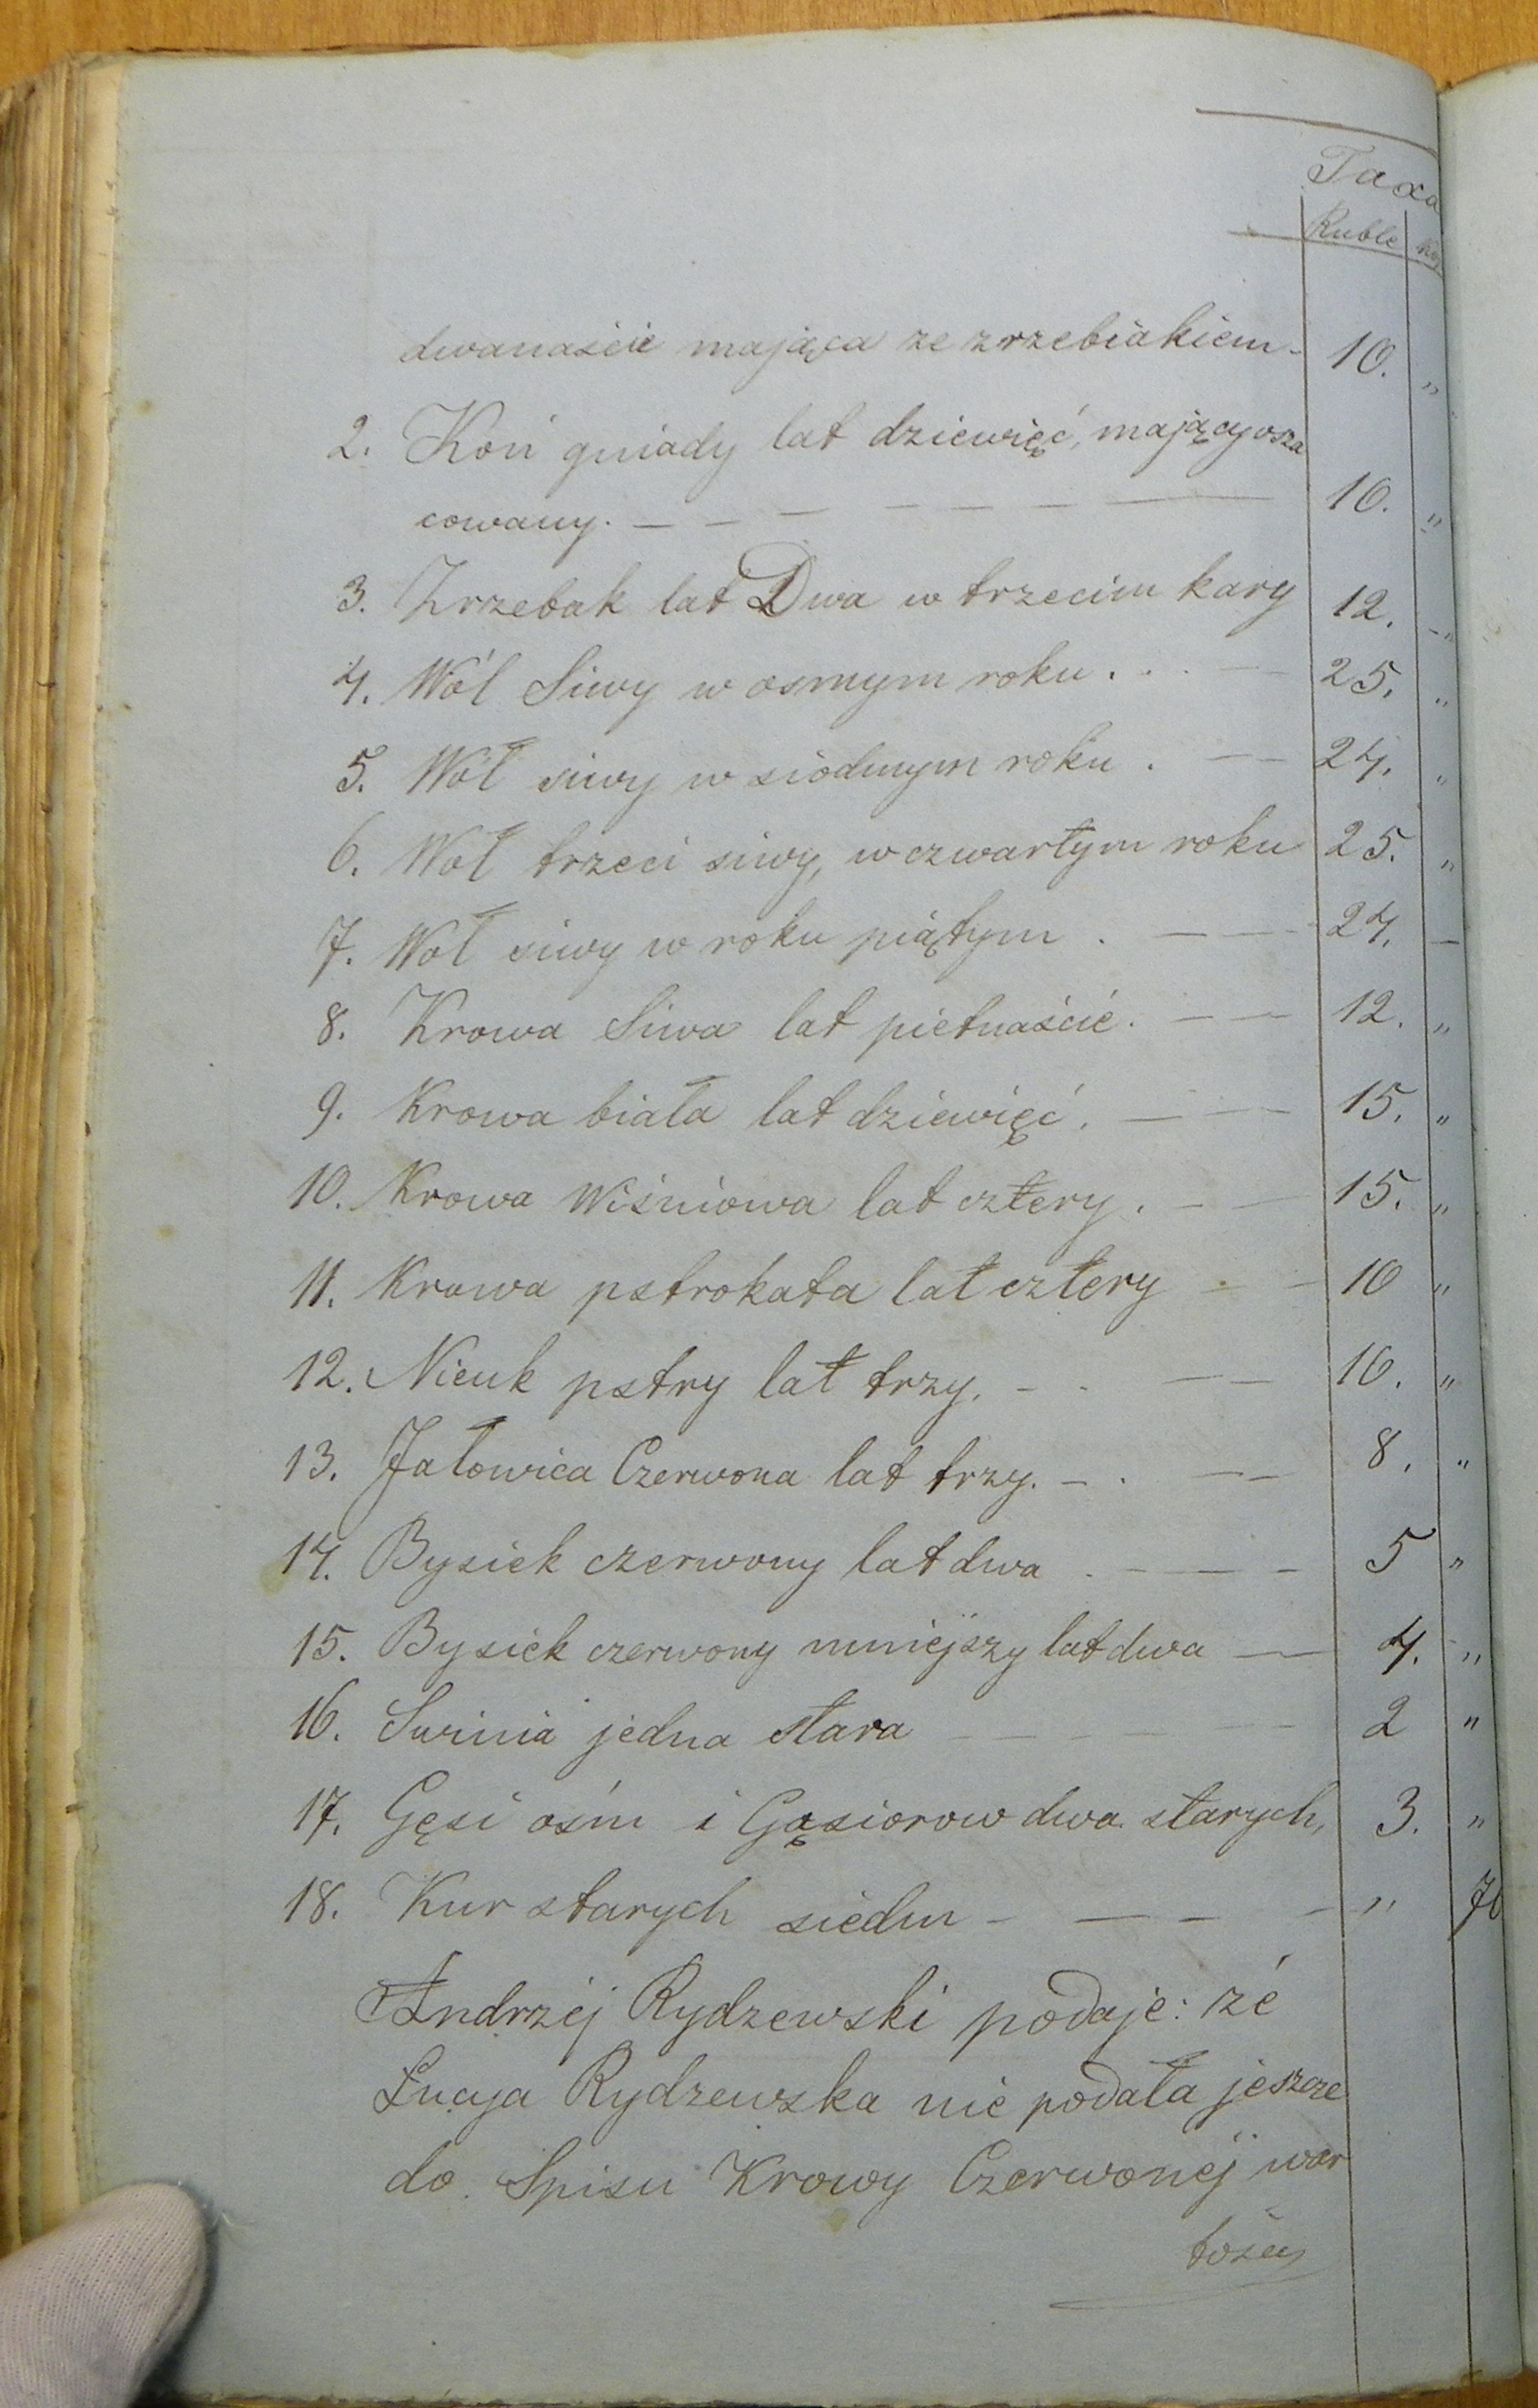 Taxa
Ruble Kop
dwanaście mająca ze zrzebiakiem - 10. "
2. Koń gniady lat dziewięć, mający osza
cowany. — — — — — — — 10. "
3. Zrzebak lat Dwa w trzecim kary 12. "
4. Wół Siwy w osmym roku . . . — — 25. "
5. Wół siwy w siodmym roku . — — 24. "
6. Woł trzeci siwy, w czwartym roku 25. "
7. Woł siwy w roku piątym . — — 24. —
8. Krowa Siwa lat pietnaście. — — 12. "
9. Krowa biała lat dziewięć. — — 15. "
10. Krowa Wiśniowa lat cztery. — — 15. "
11. Krowa pstrokata lat cztery - - 10 "
12. Nieuk pstry lat trzy. - - — — 10. "
13. Jałowica Czerwona lat trzy. - . — — 8. "
14. Bysiek czerwony lat dwa . — — — 5 "
15. Bysiek czerwony mniejszy lat dwa — 4. "
16. Swinia jedna stara — — — — — 2 "
17. Gęsi ośm i Gąsiorow dwa starych, 3. "
18. Kur starych siedm - — — - " 70
Andrzéj Rydzewski podaje: zé
Łucya Rydzewska nie podała jeszcze
do Spisu Krowy Czerwonéj war
tośći